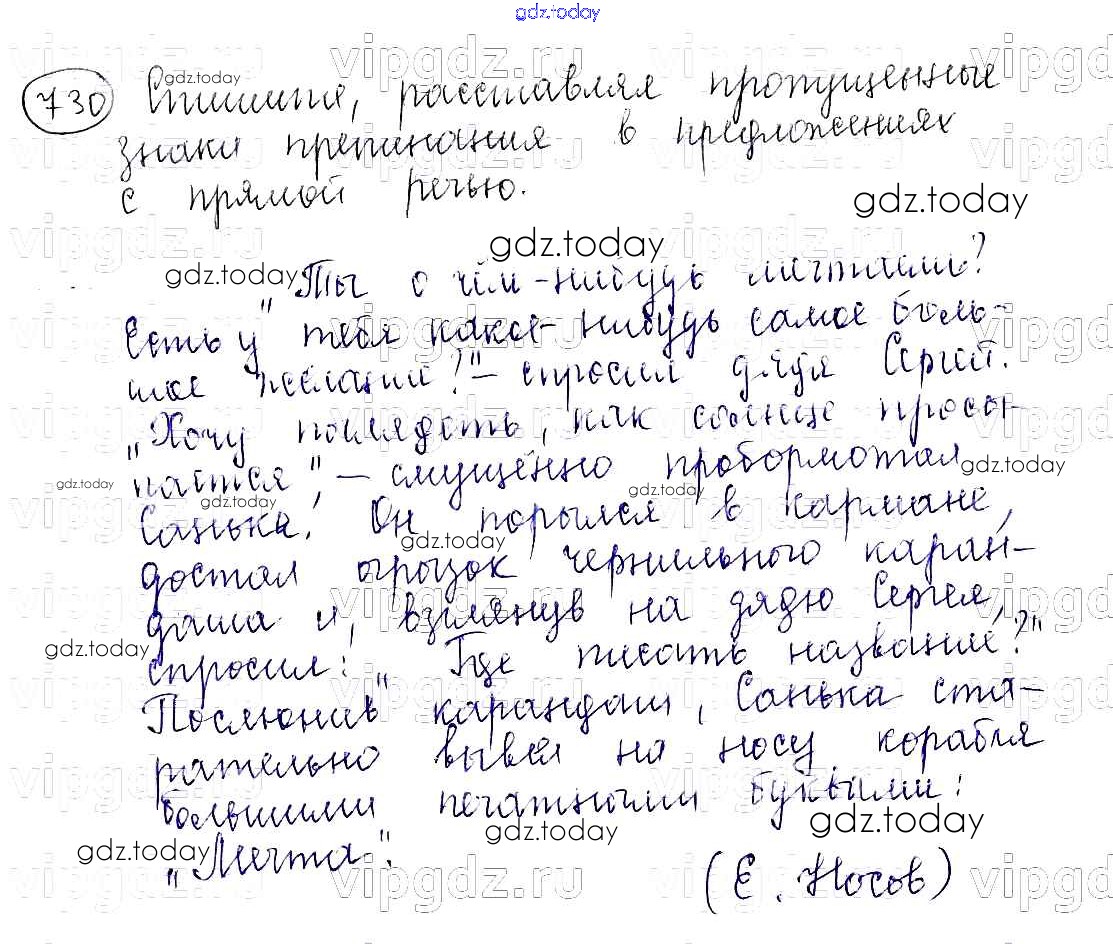 gdz.today
730 Спишите, расставляя пропущенные
знаки препинания в предложениях
с прямой речью.
"Ты о чём-нибудь мечтаешь?
Есть у тебя какое-нибудь самое боль-
шое желание?" – спросил дядя Сергей.
"Хочу поглядеть, как солнце просы-
пается", – смущённо пробормотал
Санька. Он порылся в кармане,
достал огрызок чернильного каран-
даша и, взглянув на дядю Сергея,
спросил: "Где писать название?"
Послюнив карандаш, Санька ста-
рательно вывел на носу корабля
большими печатными буквами:
"Мечта".
(Е. Носов)